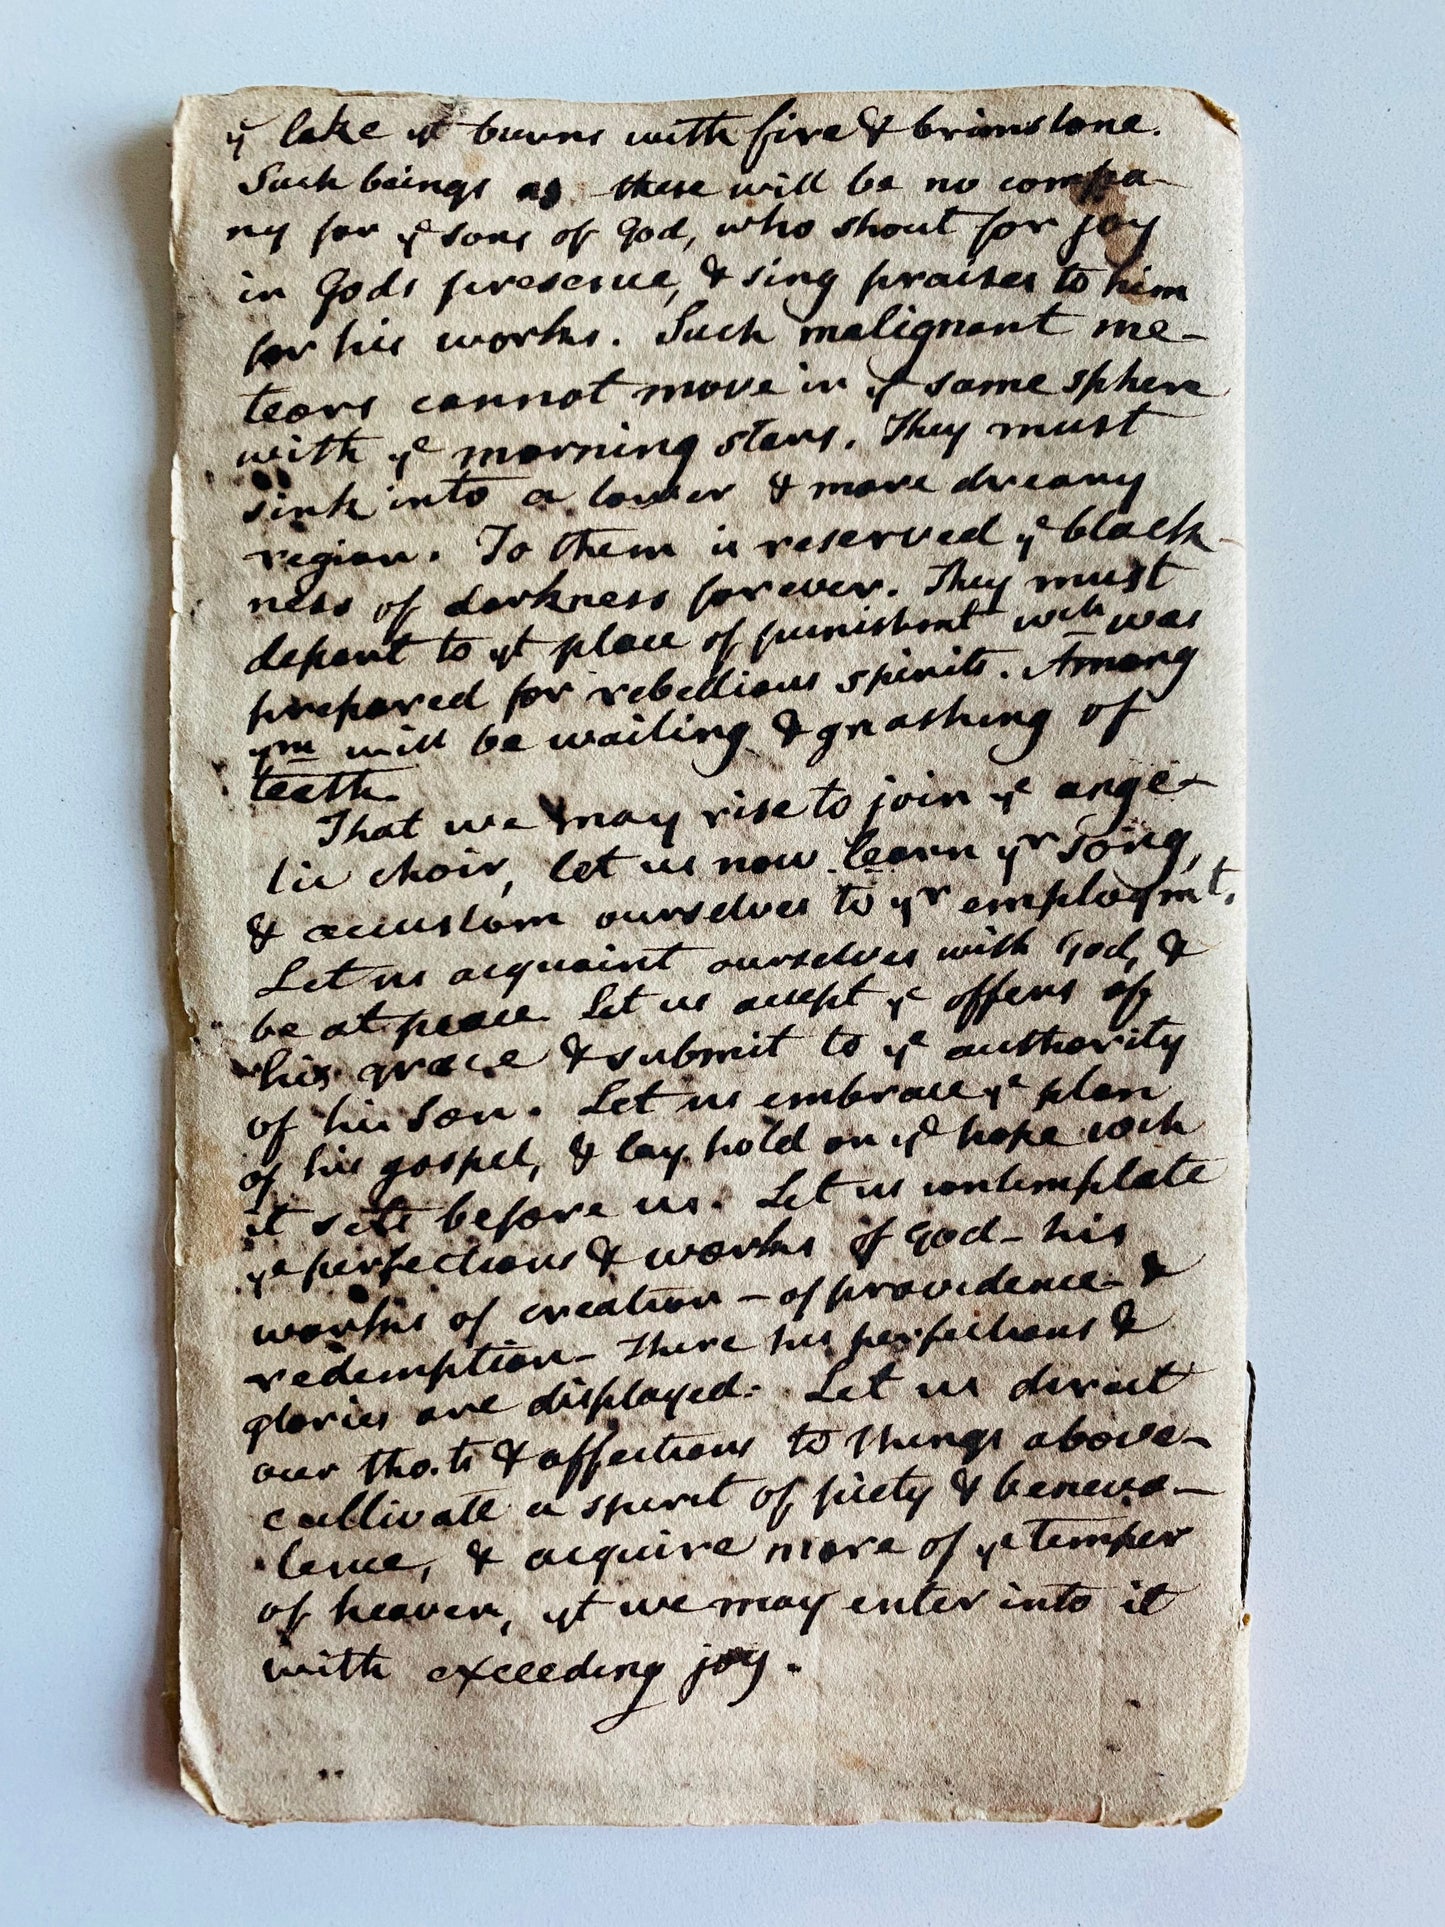 yͤ lake yt burns with fire & brimstone.
Such beings as these will be no compa-
ny for yͤ sons of God, who shout for joy
in Gods presence, & sing praises to him
for his works. Such malignant me-
teors cannot move in yͤ same sphere
with yͤ morning stars. They must
sink into a lower & more dreary
region. To them is reserved yͤ black-
ness of darkness forever. They must
depart to yt place of punishmt wch was
prepared for rebellious spirits. Among
ym will be wailing & gnashing of
teeth.
That we may rise to join yͤ ange-
lic choir, let us now learn yr song,
& accustom ourselves to yr employmt.
Let us acquaint ourselves with God, &
be at peace. Let us accept yͤ offers of
his grace & submit to yͤ authority
of his Son. Let us embrace yͤ plan
of his gospel, & lay hold on yͤ hope wch
it sets before us. Let us contemplate
yͤ perfections & works of God - his
works of creation - of providence - &
redemption - There his perfections &
glories are displayed. Let us direct
our tho.ts & affections to things above -
cultivate a spirit of piety & beneva-
lence, & acquire more of yͤ temper
of heaven, yt we may enter into it
with exceeding joy.